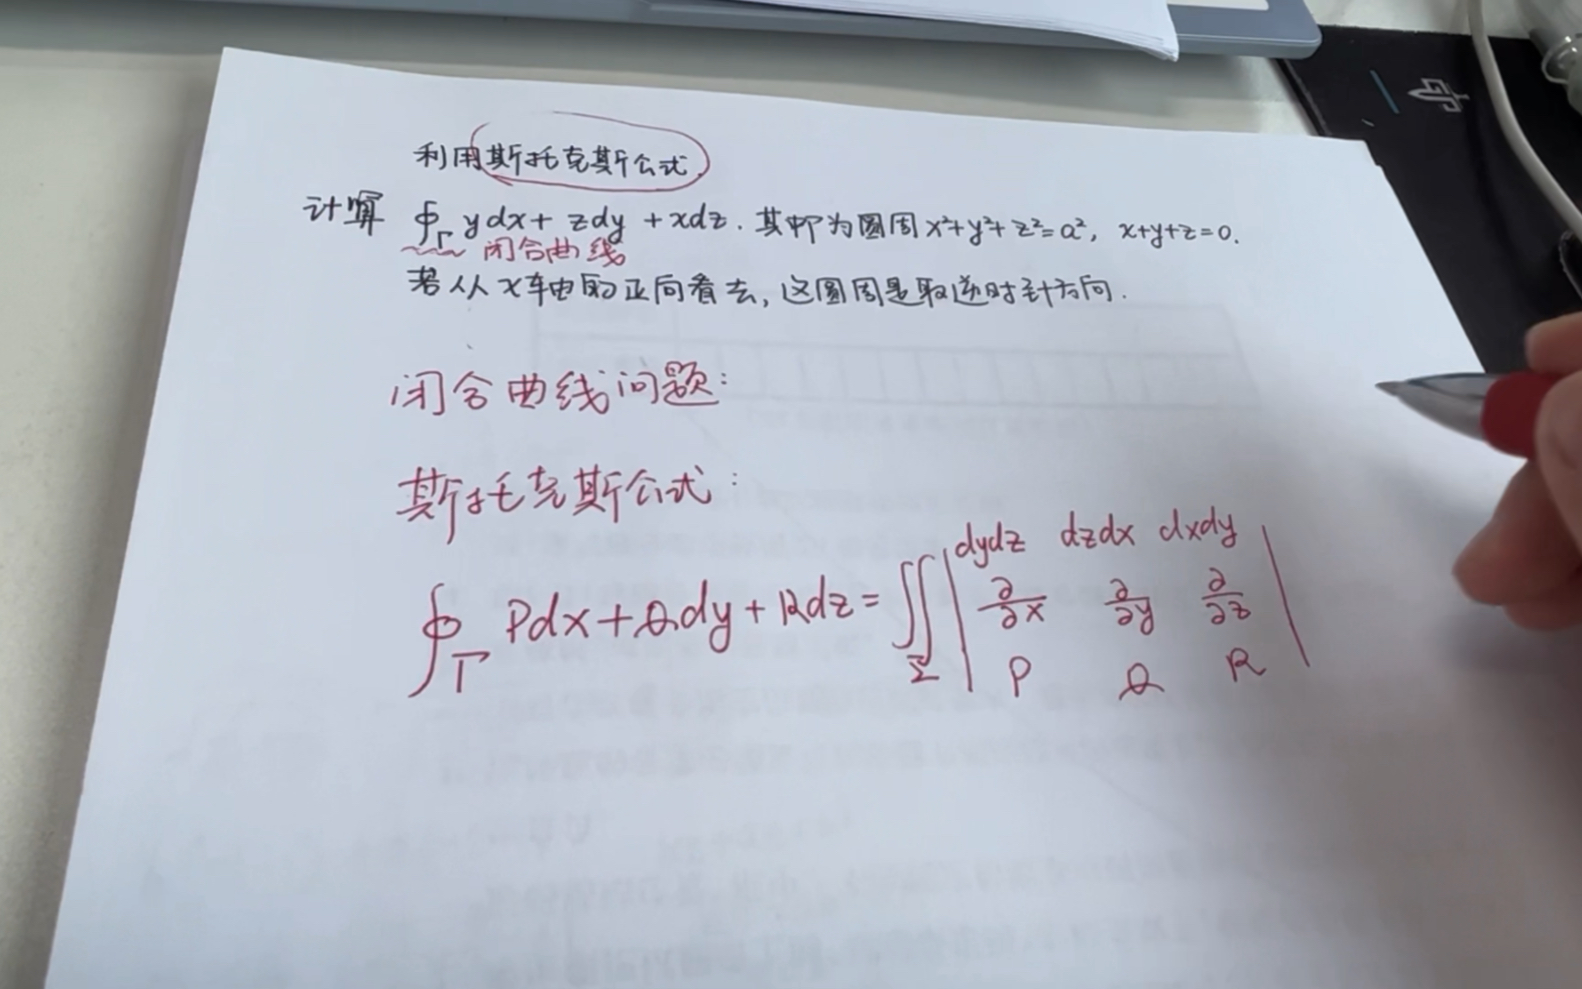 利用斯托克斯公式
计算 ∮_Γ ydx + zdy + xdz. 其中Γ为圆周 x²+y²+z²=a², x+y+z=0.
闭合曲线
若从x轴的正向看去,这圆周是取逆时针方向.
闭合曲线问题:
斯托克斯公式:
dydz dzdx dxdy
∮_Γ Pdx+Qdy+Rdz = ∬_Σ | ∂/∂x ∂/∂y ∂/∂z |
P Q R